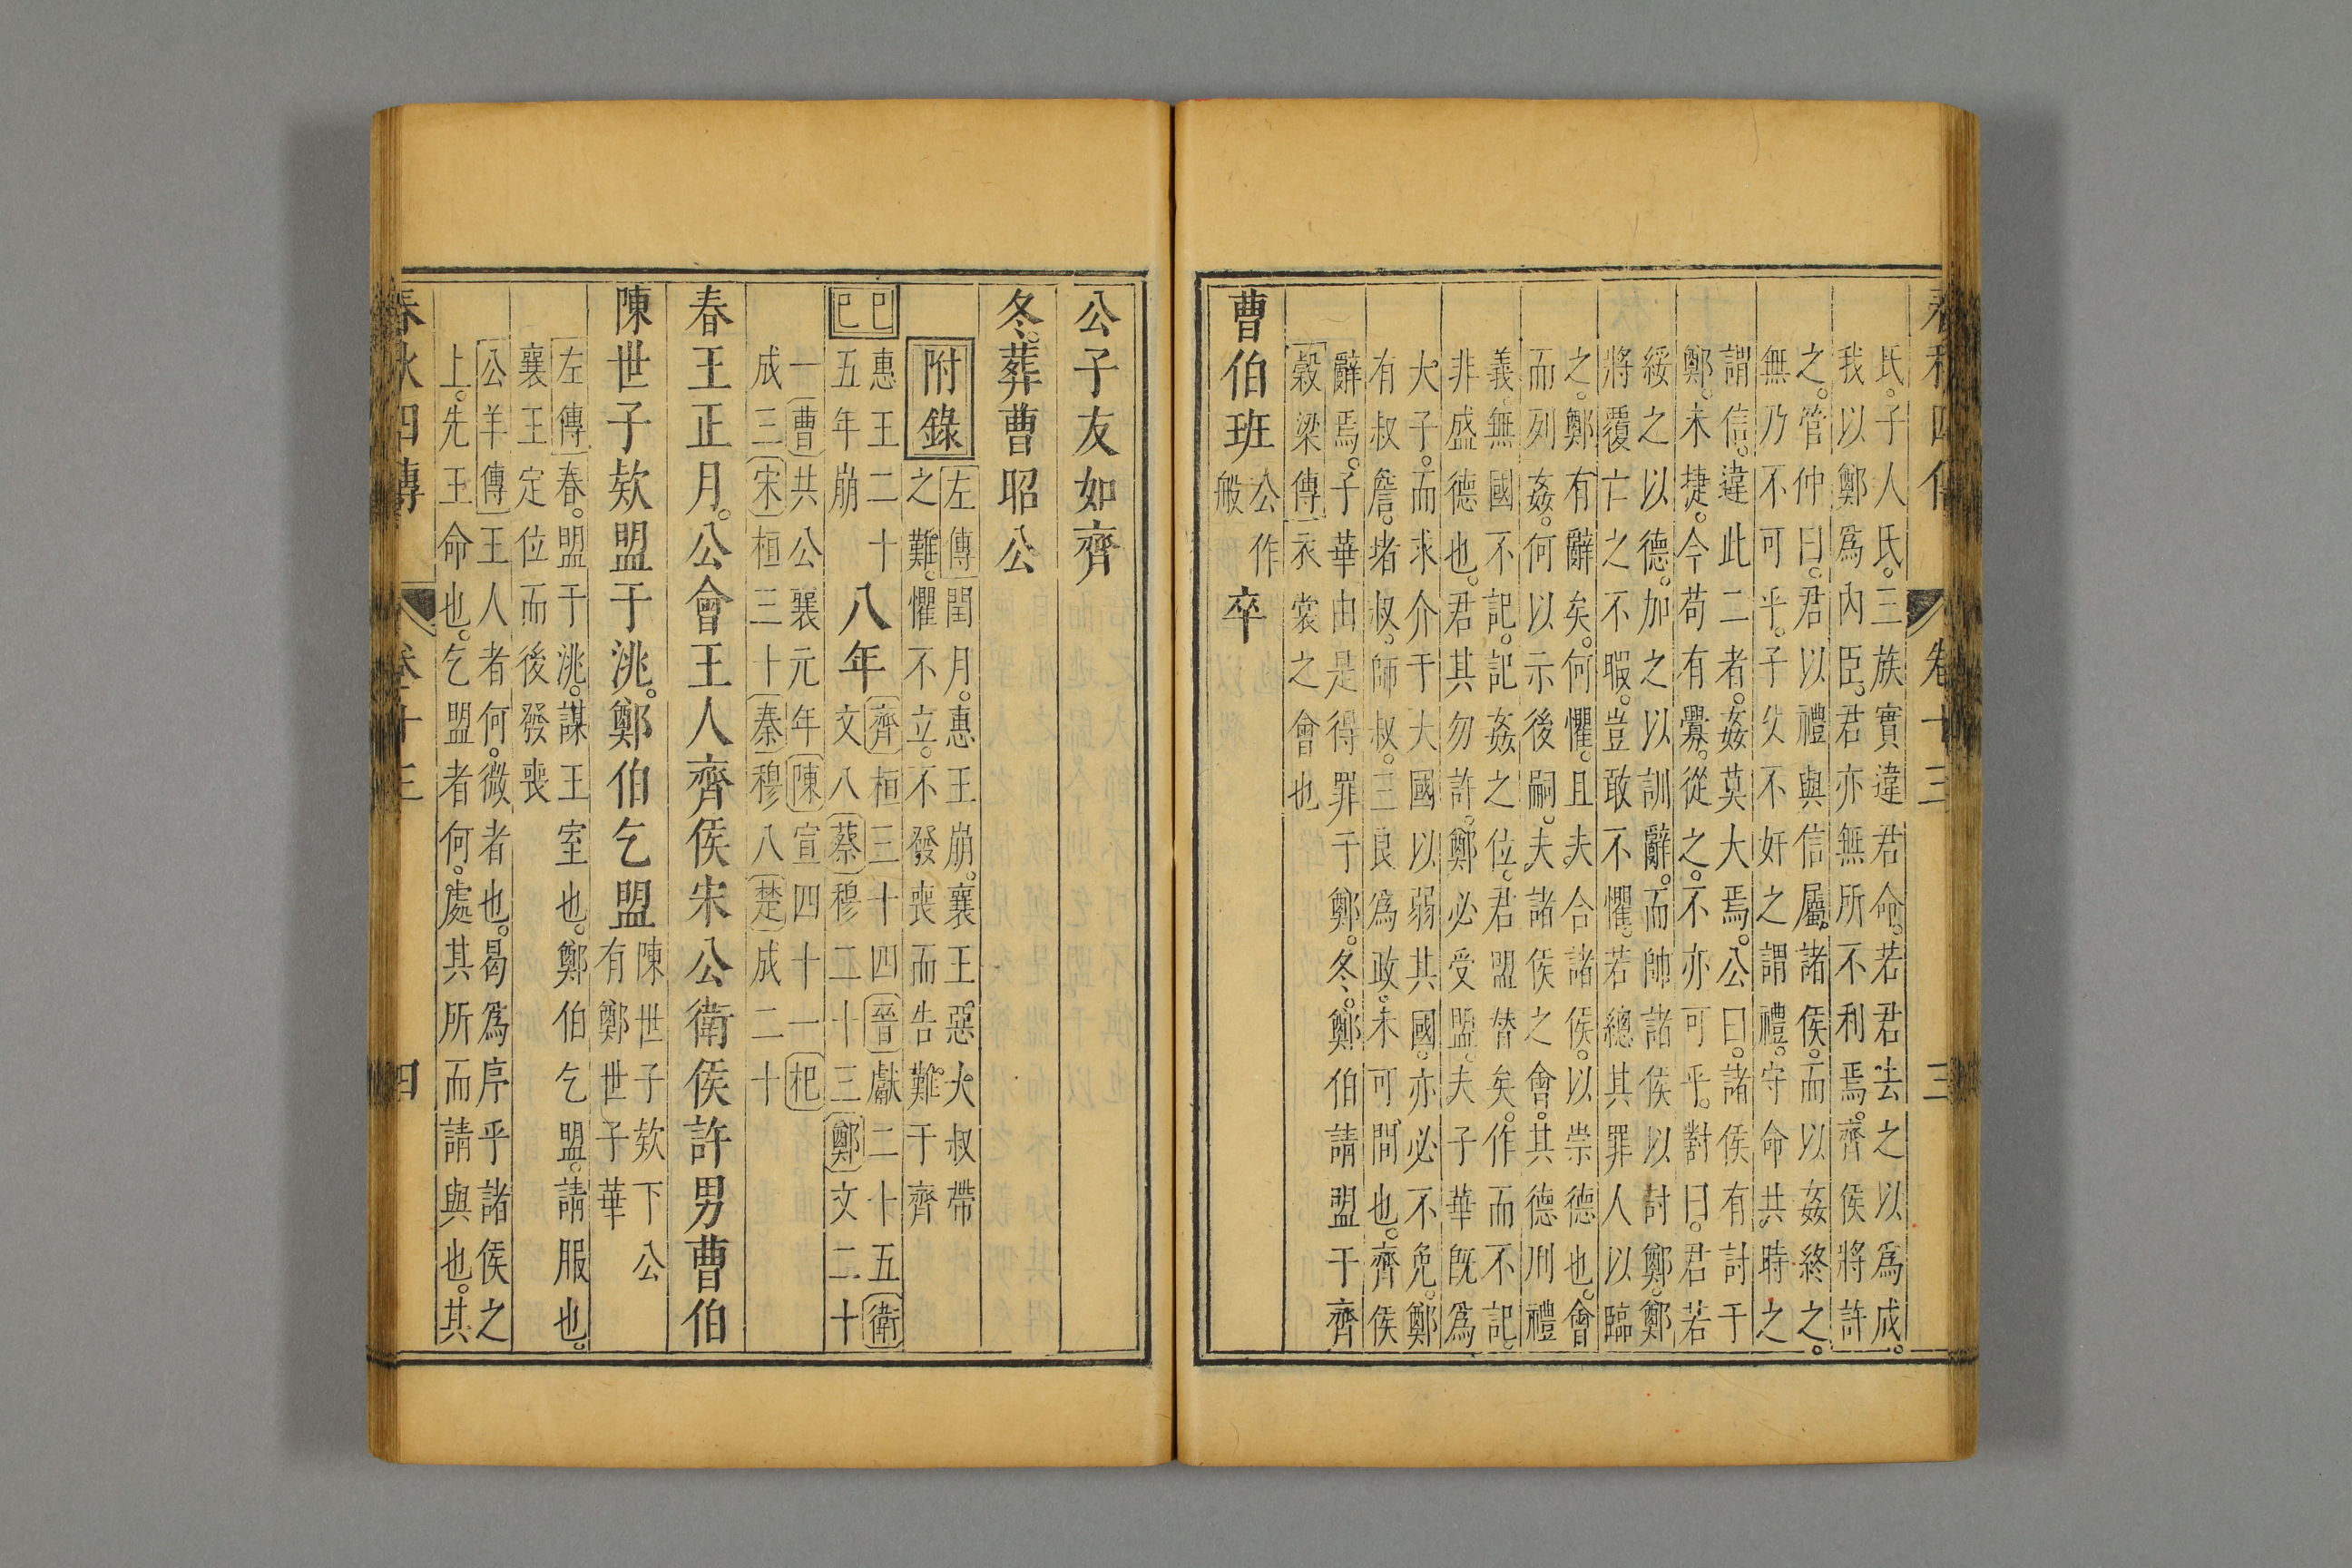 春秋四傳 卷十三 三
氏。子人氏。三族實違君命。若君去之以爲成。
我以鄭爲內臣。君亦無所不利焉。齊侯將許
之。管仲曰。君以禮與信屬諸侯。而以姦終之。
無乃不可乎。子父不奸之謂禮。守命共時之
謂信。違此二者。姦莫大焉。公曰。諸侯有討于
鄭。未捷。今苟有釁。從之。不亦可乎。對曰。君若
綏之以德。加之以訓辭。而帥諸侯以討鄭。鄭
將覆亡之不暇。豈敢不懼。若總其罪人以臨
之。鄭有辭矣。何懼。且夫合諸侯。以崇德也。會
而列姦。何以示後嗣。夫諸侯之會。其德刑禮
義。無國不記。記姦之位。君盟替矣。作而不記。
非盛德也。君其勿許。鄭必受盟。夫子華旣爲
大子。而求介于大國以弱其國。亦必不免。鄭
有叔詹。堵叔。師叔。三良爲政。未可間也。齊侯
辭焉。子華由是得罪于鄭。冬。鄭伯請盟于齊
穀梁傳 衣裳之會也
曹伯班 公作般 卒
公子友如齊
冬。葬曹昭公
附錄 左傳 閏月。惠王崩。襄王惡大叔帶
之難。懼不立。不發喪而告難于齊
己巳 惠王二十五年崩 八年 齊桓三十四 晉獻二十五 衛
文八 蔡穆二十三 鄭文二十
一 曹共公襄元年 陳宣四十一 杞
成三 宋桓三十 秦穆八 楚成二十
春王正月。公會王人齊侯宋公衛侯許男曹伯
陳世子款盟于洮。鄭伯乞盟 陳世子款下公
有鄭世子華
左傳 春。盟于洮。謀王室也。鄭伯乞盟。請服也。
襄王定位而後發喪
公羊傳 王人者何。微者也。曷爲序乎諸侯之
上。先王命也。乞盟者何。處其所而請與也。其
春秋四傳 卷十三 四